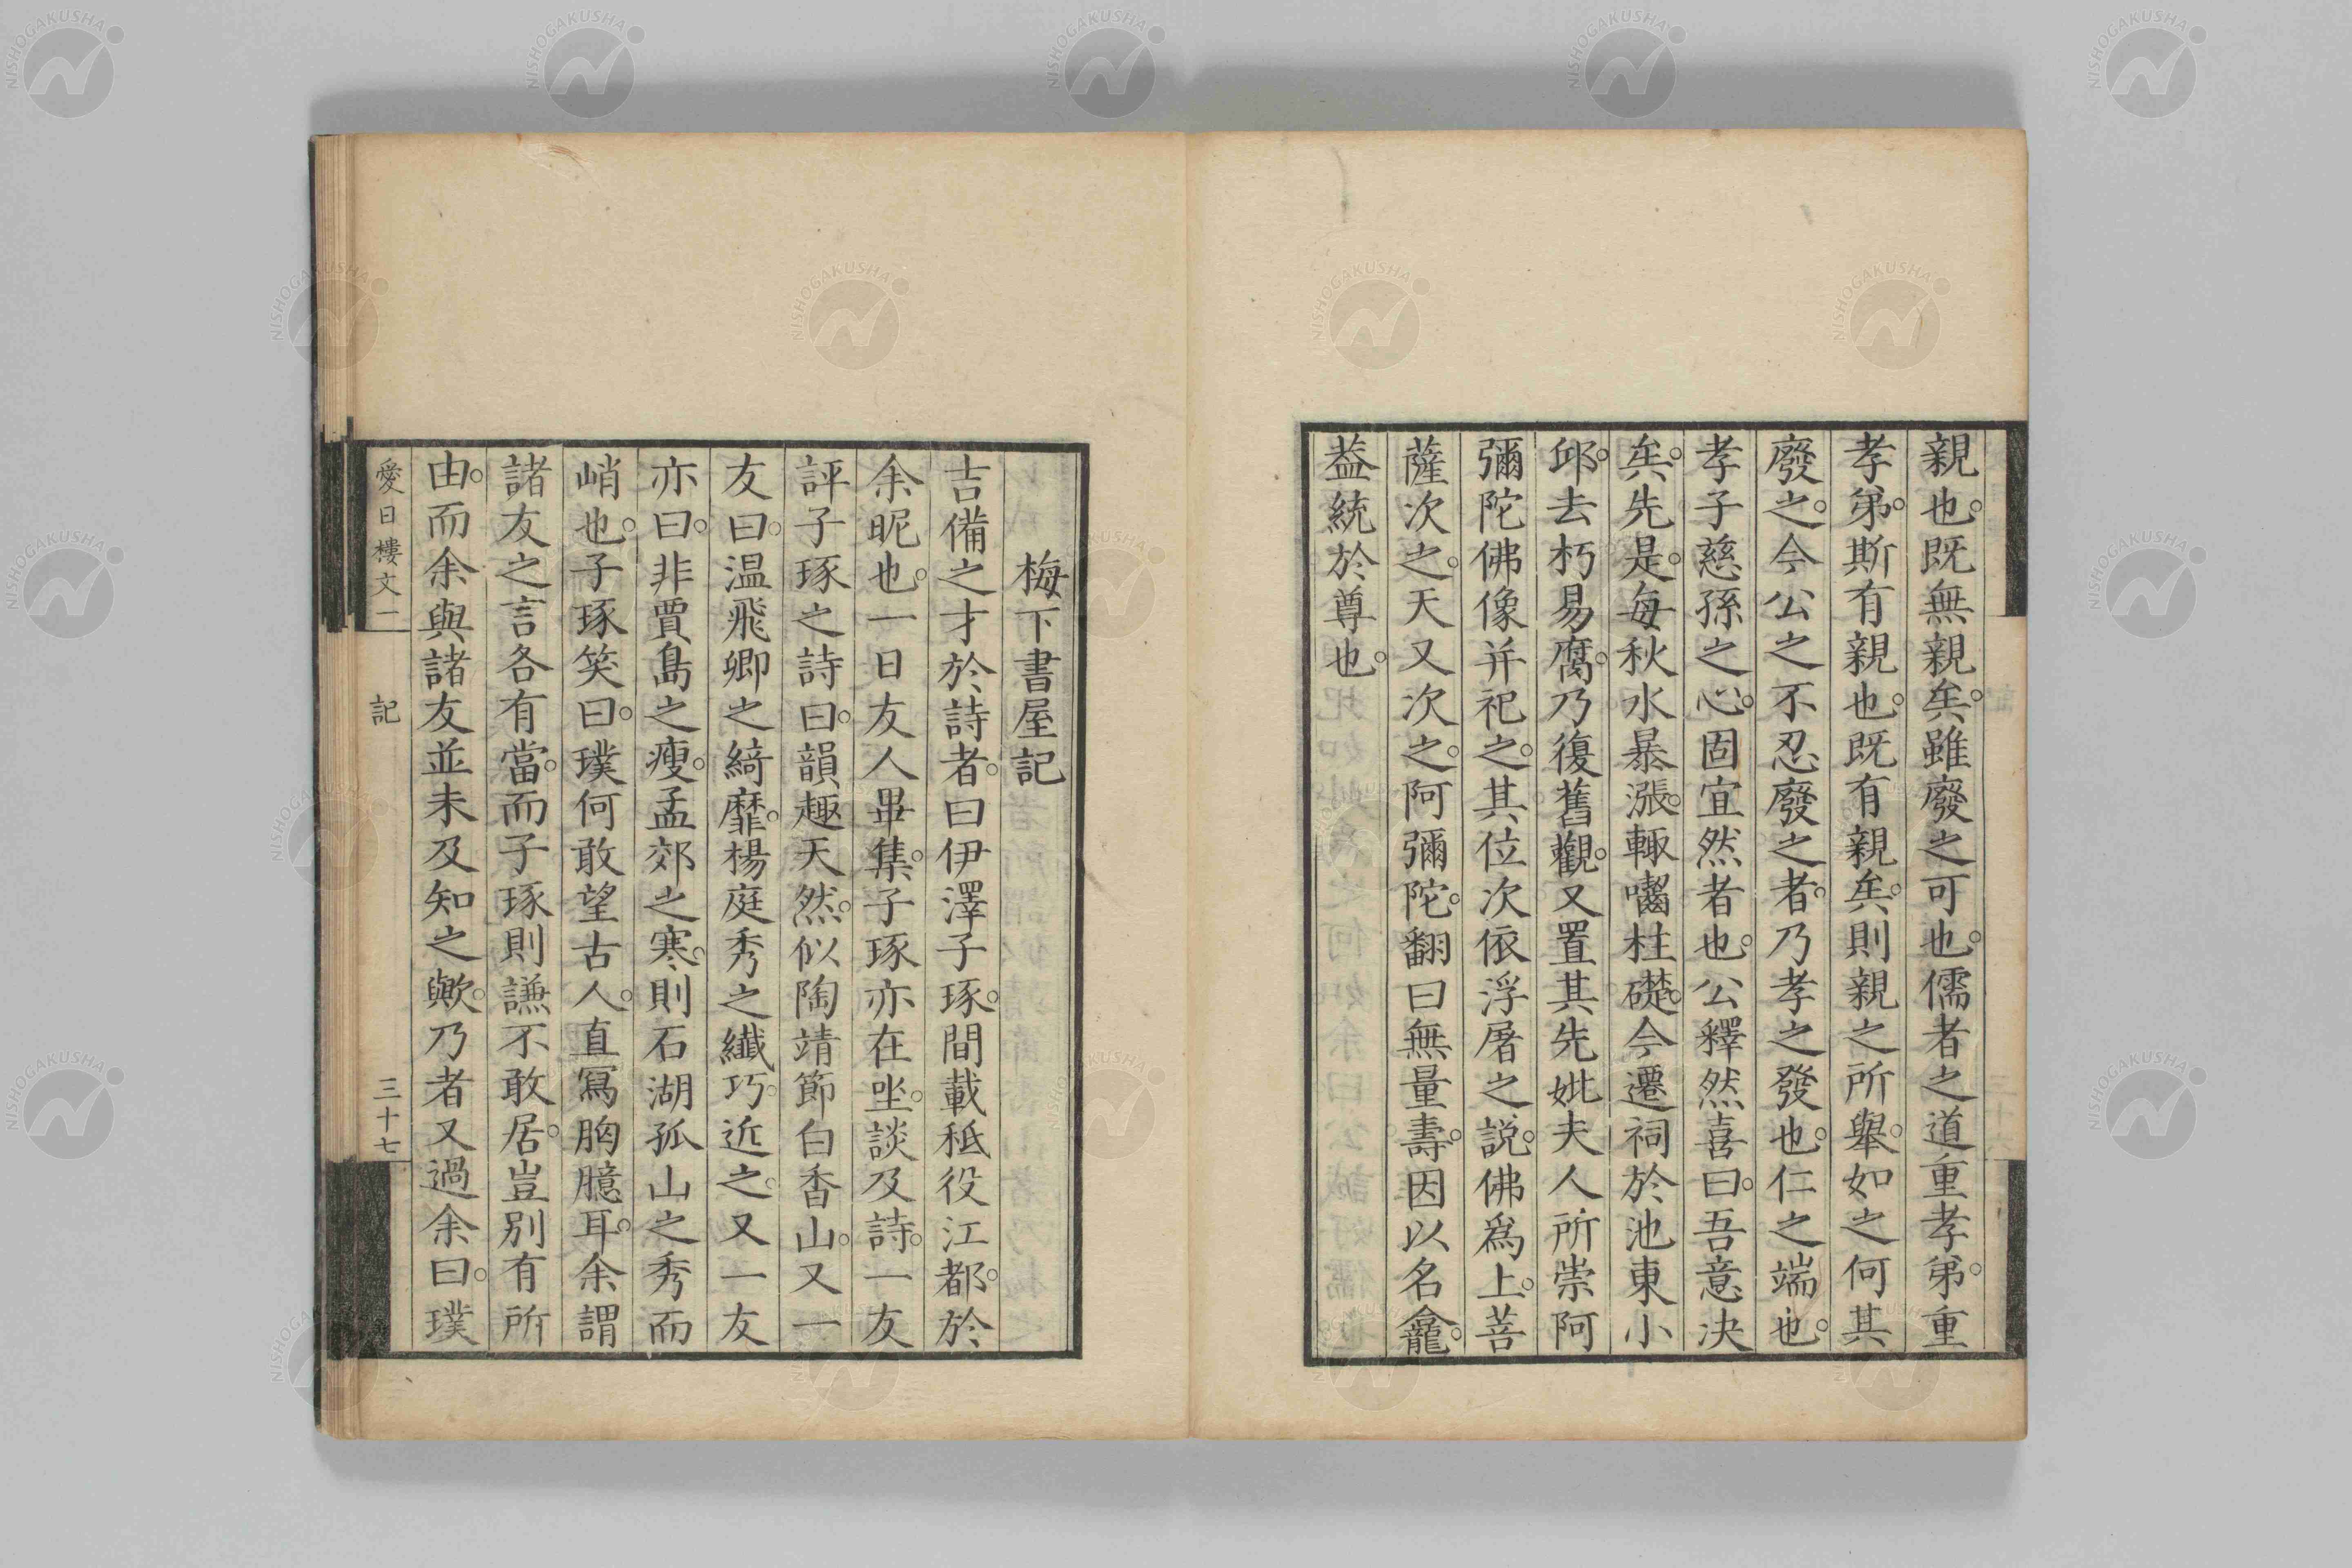 親也。既無親矣。雖廢之可也。儒者之道重孝弟。重
孝弟。斯有親也。既有親矣。則親之所舉。如之何其
廢之。今公之不忍廢之者。乃孝之發也。仁之端也。
孝子慈孫之心。固宜然者也。公釋然喜曰。吾意決
矣。先是。每秋水暴漲。輒囓柱礎。今遷祠於池東小
邱。去朽易腐。乃復舊觀。又置其先妣夫人所崇阿
彌陀佛像并祀之。其位次依浮屠之說。佛爲上。菩
薩次之。天又次之。阿彌陀。翻曰無量壽。因以名龕。
葢統於尊也。
梅下書屋記
吉備之才於詩者。曰伊澤子琢。間載秪役江都。於
余昵也。一日友人畢集。子琢亦在坐。談及詩。一友
評子琢之詩曰。韻趣天然。似陶靖節白香山。又一
友曰。温飛卿之綺靡。楊庭秀之纖巧。近之。又一友
亦曰。非賈島之瘦。孟郊之寒。則石湖孤山之秀而
峭也。子琢笑曰。璞何敢望古人。直寫胸臆耳。余謂
諸友之言各有當。而子琢則謙不敢居。豈別有所
由。而余與諸友並未及知之歟。乃者又過余曰。璞
愛日樓文二 記 三十七
NISHOGAKUSHA